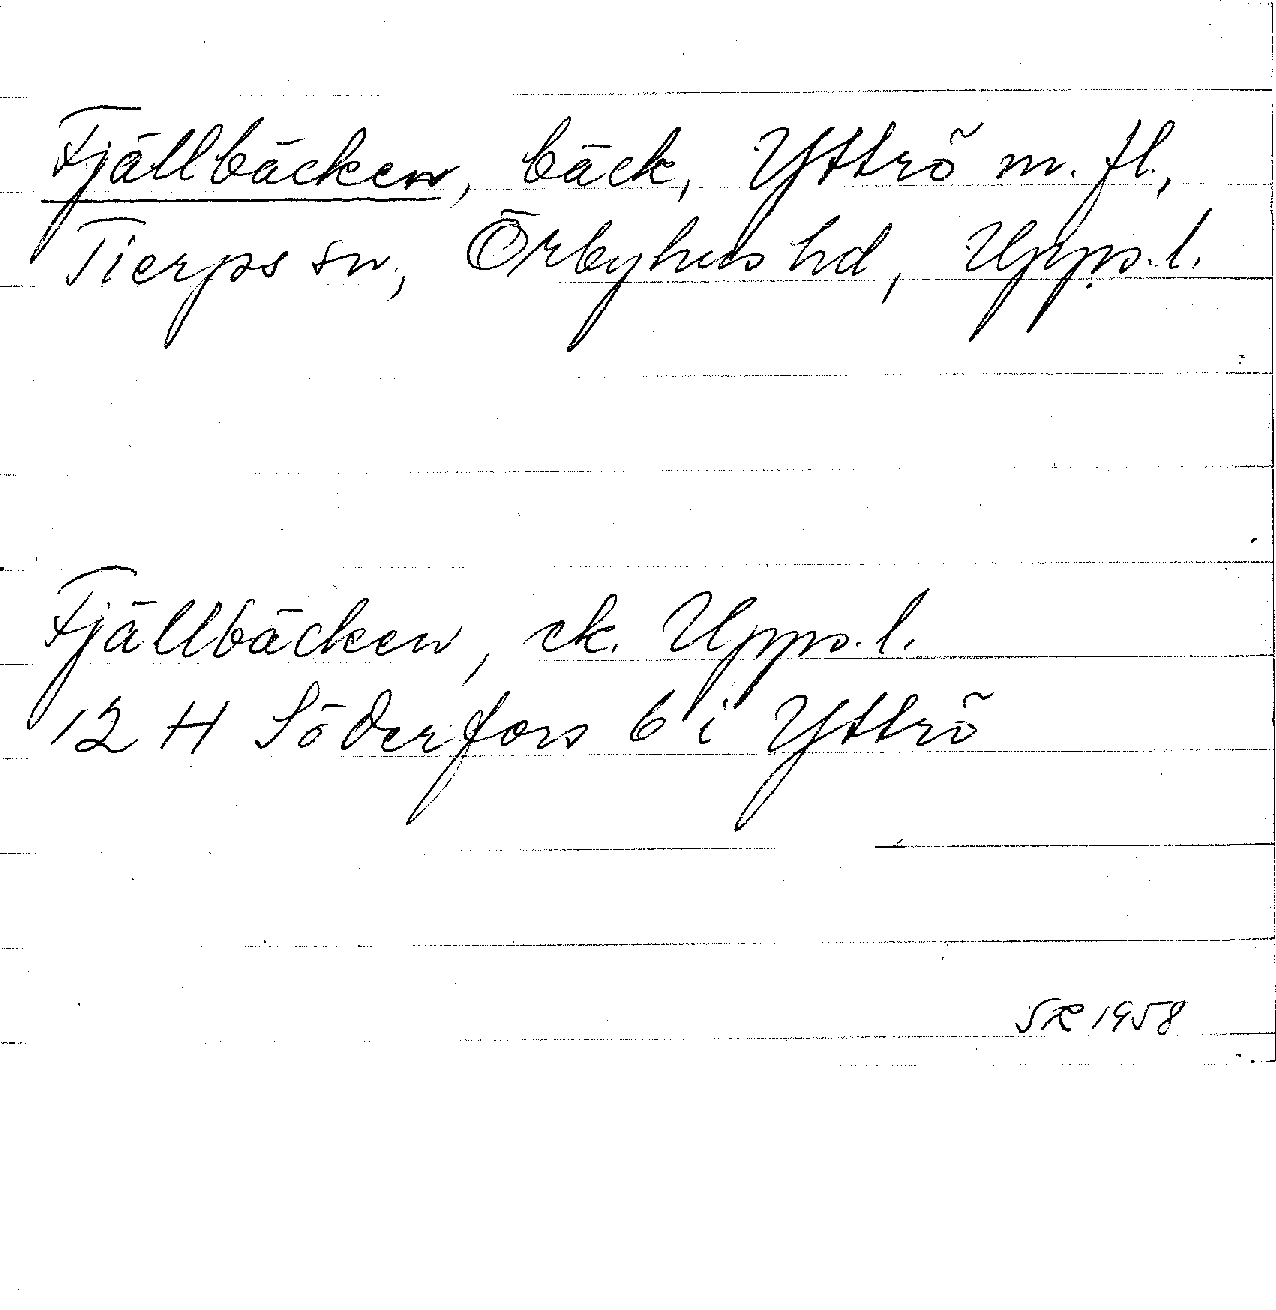 Fjällbäcken, bäck, Yttrö m. fl.,
Tierps sn, Örbyhus hd, Upps.l.
Fjällbäcken, ek. Upps.l.
12 H Söderfors 6 i Yttrö
SR 1958